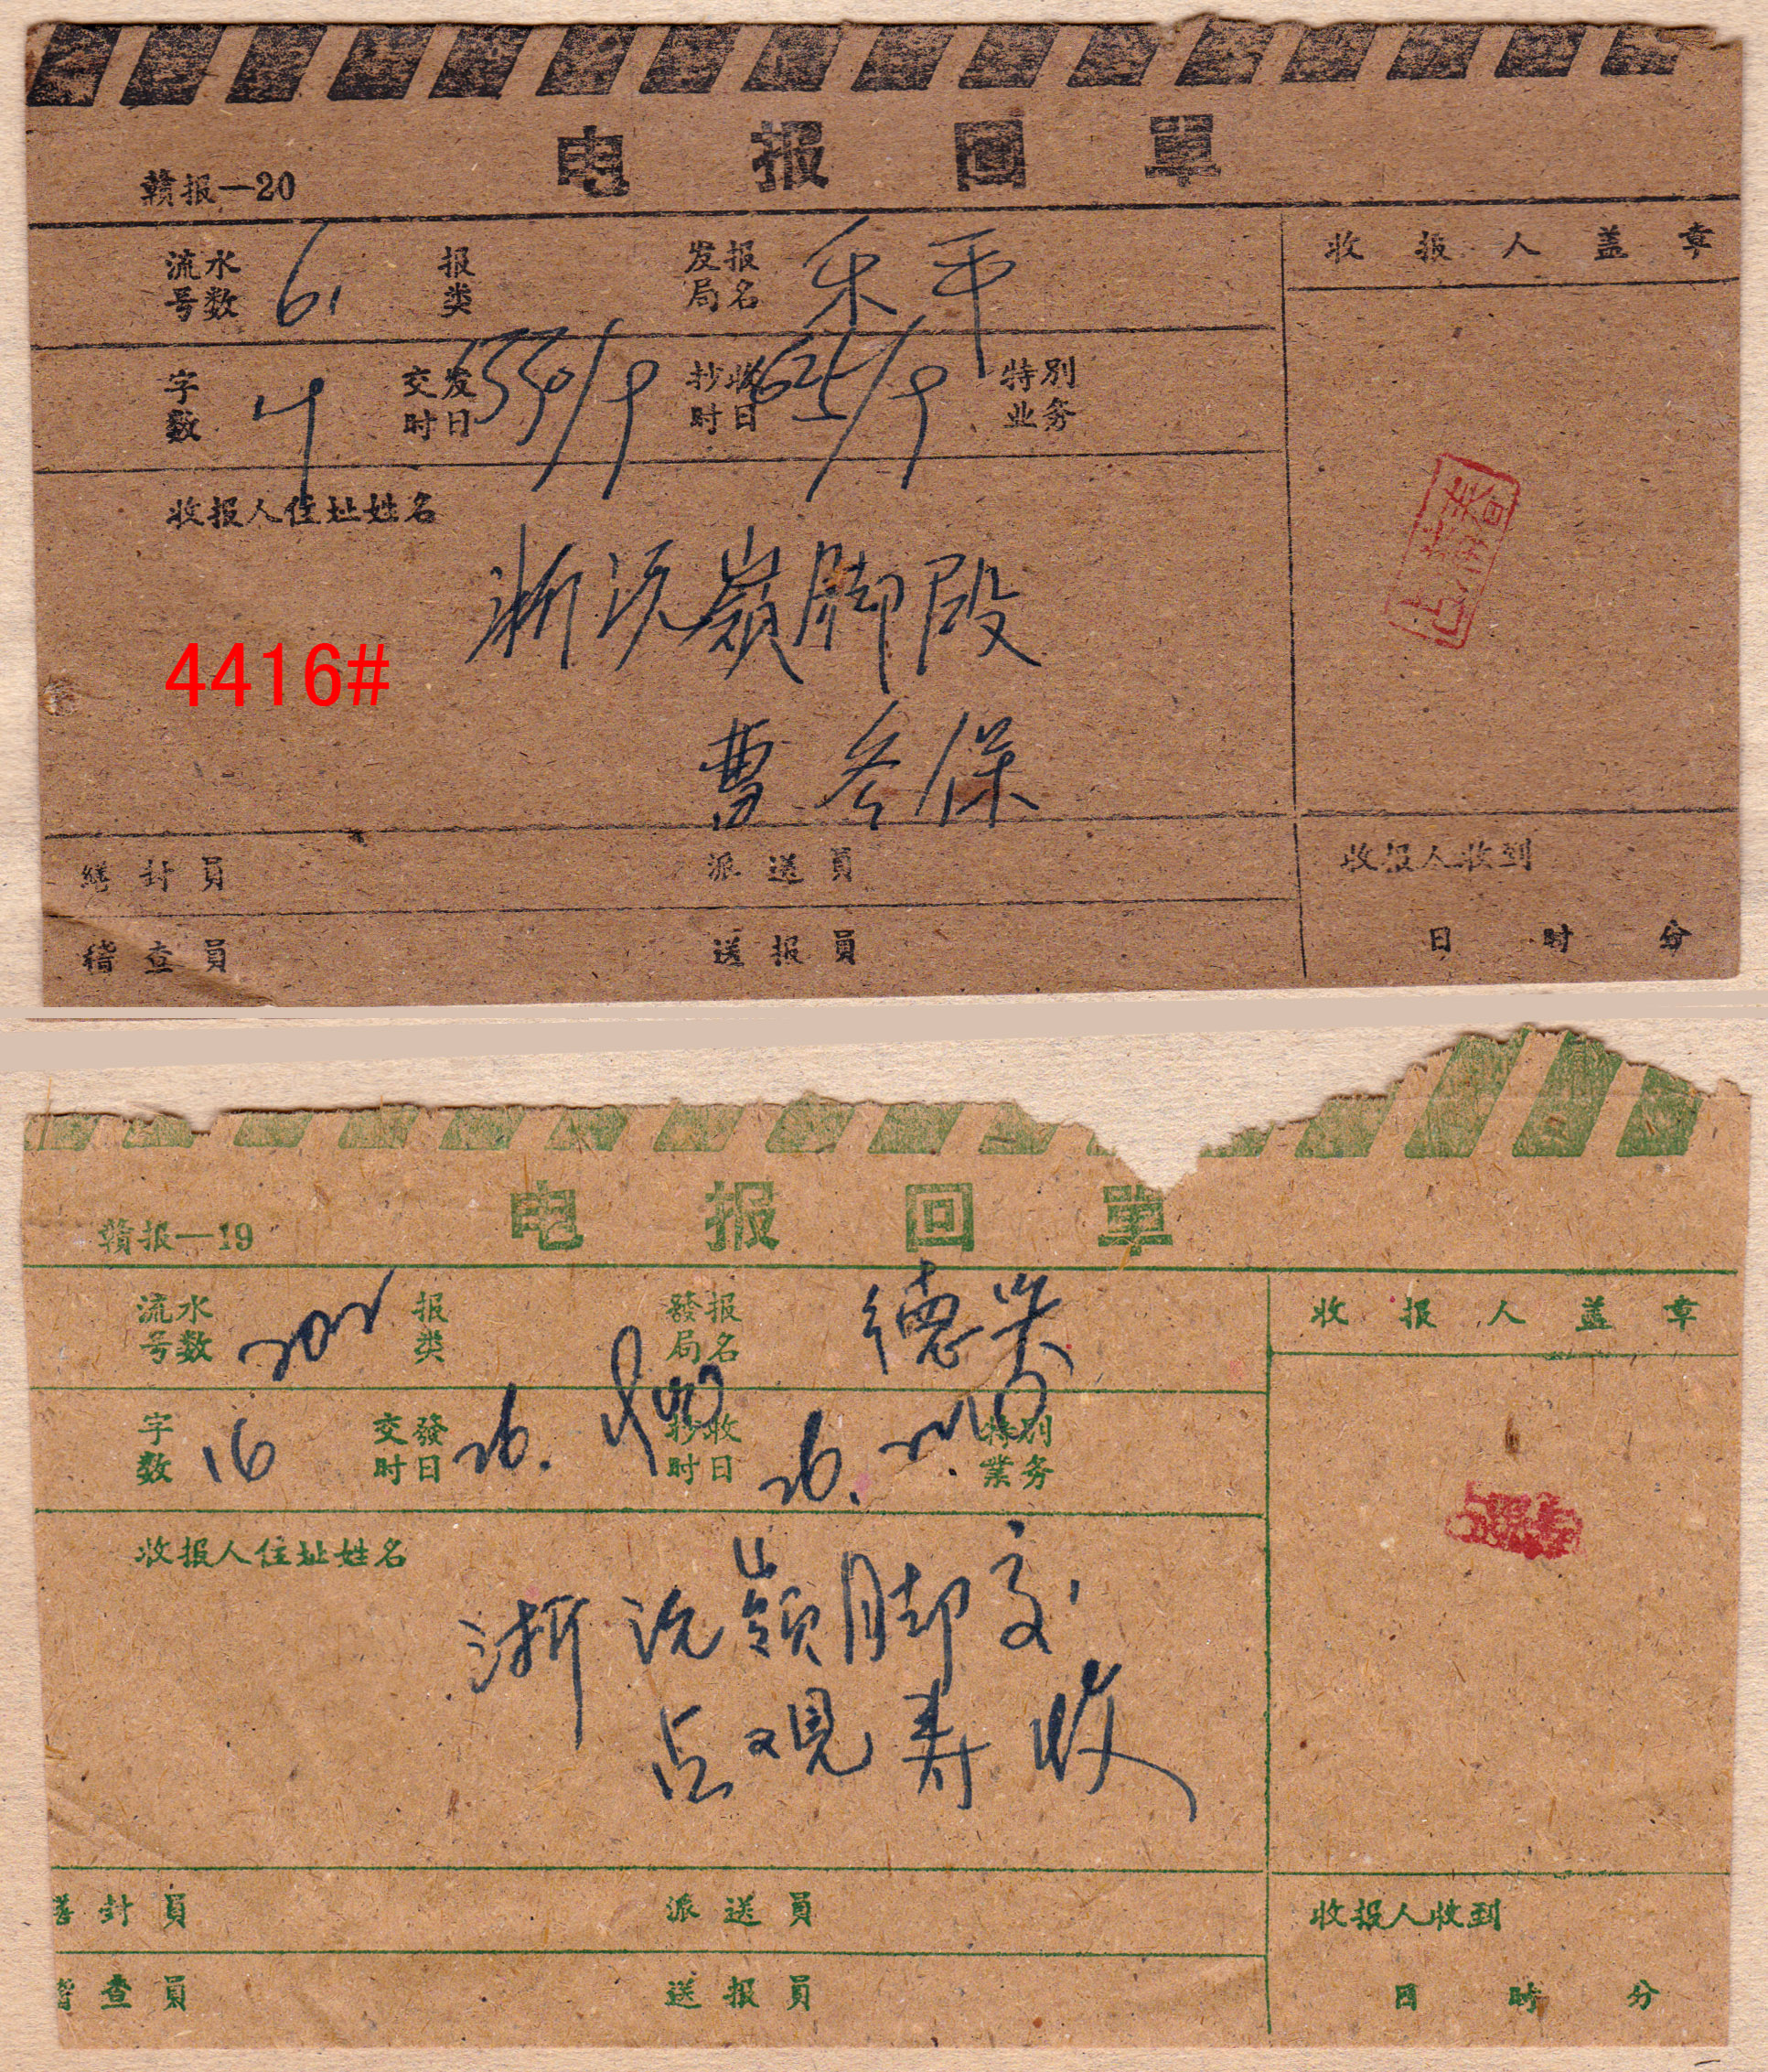 电报回單
贛报—20
流水号数 61 报类 发报局名 乐平
字数 4 交发时日 1530/9 抄收时日 1625/9 特别业务
收报人盖章
收报人住址姓名
浙沅嶺脚段
曹冬保
4416#
缮封員 派送員
稽查員 送报員
收报人收到
日 时 分
电报回單
贛报—19
流水号数 202 报类 發报局名 德兴
字数 16 交發时日 26. 抄收时日 26. 特别業务
收报人盖章
收报人住址姓名
浙沅嶺脚交
占观寿收
缮封員 派送員
稽查員 送报員
收报人收到
日 時 分